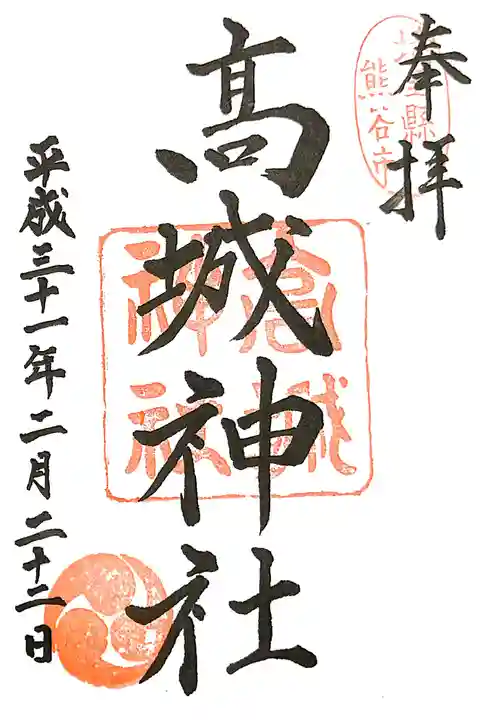 奉拝
埼玉縣
熊谷市
高城神社
高城
神社
平成三十一年二月二十二日